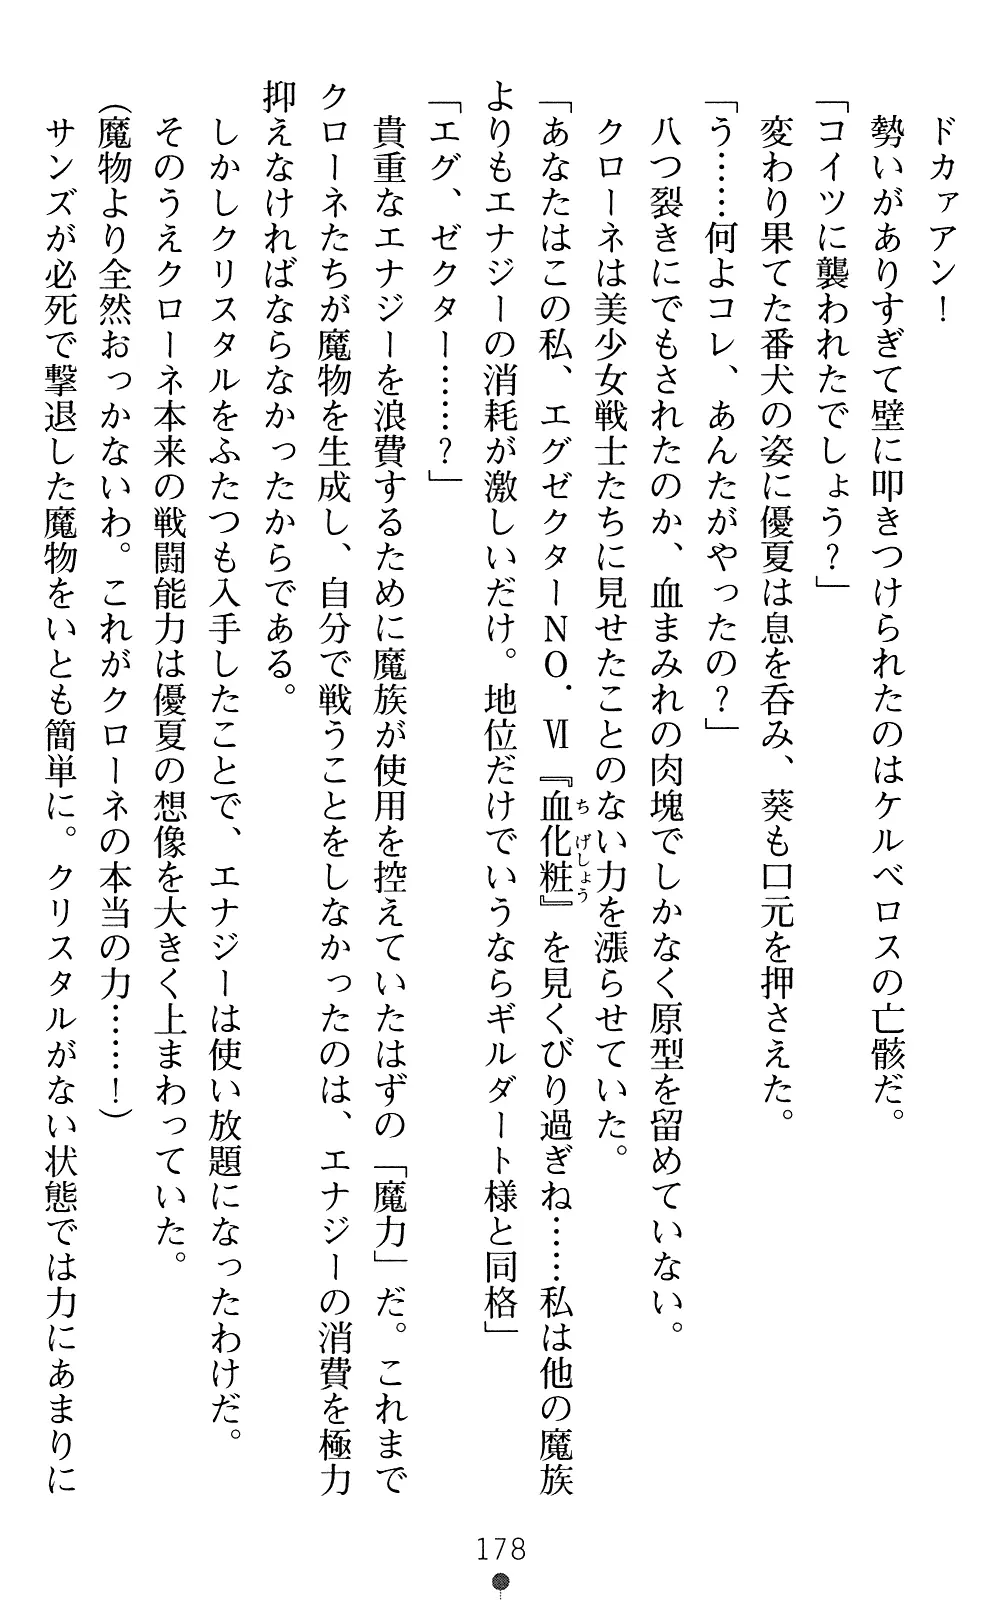 ドカァアン！
勢いがありすぎて壁に叩きつけられたのはケルベロスの亡骸だ。
「コイツに襲われたでしょう？」
変わり果てた番犬の姿に優夏は息を呑み、葵も口元を押さえた。
「う……何よコレ、あんたがやったの？」
八つ裂きにでもされたのか、血まみれの肉塊でしかなく原型を留めていない。
クローネは美少女戦士たちに見せたことのない力を漲らせていた。
「あなたはこの私、エグゼクターＮＯ．Ⅵ『血化粧』を見くびり過ぎね……私は他の魔族
ちげしょう
よりもエナジーの消耗が激しいだけ。地位だけでいうならギルダート様と同格」
「エグ、ゼクター……？」
貴重なエナジーを浪費するために魔族が使用を控えていたはずの「魔力」だ。これまで
クローネたちが魔物を生成し、自分で戦うことをしなかったのは、エナジーの消費を極力
抑えなければならなかったからである。
しかしクリスタルをふたつも入手したことで、エナジーは使い放題になったわけだ。
そのうえクローネ本来の戦闘能力は優夏の想像を大きく上まわっていた。
（魔物より全然おっかないわ。これがクローネの本当の力……！）
サンズが必死で撃退した魔物をいとも簡単に。クリスタルがない状態では力にあまりに
178